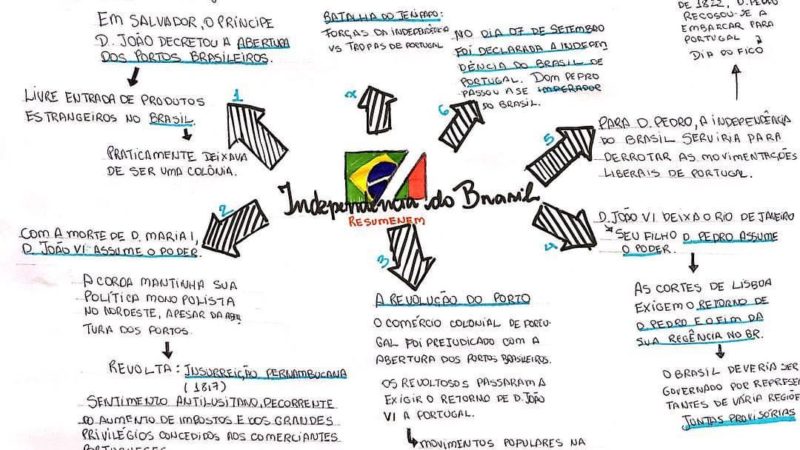 EM SALVADOR, O PRÍNCIPE
D. JOÃO DECRETOU A ABERTURA
DOS PORTOS BRASILEIROS.
LIVRE ENTRADA DE PRODUTOS
ESTRANGEIROS NO BRASIL.
PRATICAMENTE DEIXAVA
DE SER UMA COLÔNIA.
1
BATALHA DO JENIPAPO:
FORÇAS DA INDEPENDÊNCIA
VS TROPAS DE PORTUGAL
NO DIA 07 DE SETEMBRO
FOI DECLARADA A INDEPEN
DÊNCIA DO BRASIL DE
PORTUGAL. DOM PEDRO
PASSOU A SE IMPERADOR
DO BRASIL.
6
DE 1822, D. PEDRO
RECUSOU-SE A
EMBARCAR PARA
PORTUGAL
DIA DO FICO
5
PARA D. PEDRO, A INDEPENDÊNCIA
DO BRASIL SERVIRIA PARA
DERROTAR AS MOVIMENTAÇÕES
LIBERAIS DE PORTUGAL.
Independência do Brasil
RESUMENEM
2
COM A MORTE DE D. MARIA I,
D. JOÃO VI ASSUME O PODER.
A COROA MANTINHA SUA
POLÍTICA MONOPOLISTA
NO NORDESTE, APESAR DA ABER
TURA DOS PORTOS.
REVOLTA: INSURREIÇÃO PERNAMBUCANA
(1817)
SENTIMENTO ANTILUSITANO, DECORRENTE
DO AUMENTO DE IMPOSTOS E DOS GRANDES
PRIVILÉGIOS CONCEDIDOS AOS COMERCIANTES
PORTUGUESES
3
A REVOLUÇÃO DO PORTO
O COMÉRCIO COLONIAL DE PORTU
GAL FOI PREJUDICADO COM A
ABERTURA DOS PORTOS BRASILEIROS.
OS REVOLTOSOS PASSARAM A
EXIGIR O RETORNO DE D. JOÃO
VI A PORTUGAL.
MOVIMENTOS POPULARES NA
4
D. JOÃO VI DEIXA O RIO DE JANEIRO
SEU FILHO D. PEDRO ASSUME
O PODER.
AS CORTES DE LISBOA
EXIGEM O RETORNO DE
D. PEDRO E O FIM DA
SUA REGÊNCIA NO BR.
O BRASIL DEVERIA SER
GOVERNADO POR REPRESEN
TANTES DE VÁRIA REGIÕES
JUNTAS PROVISÓRIAS